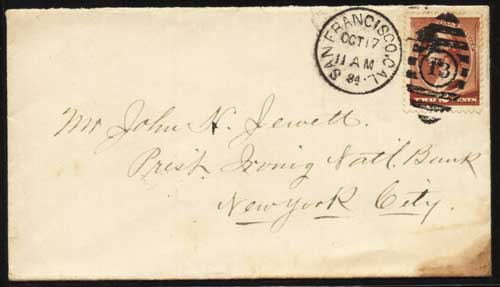 SAN FRANCISCO, CAL.
OCT 17
11 AM
84
13
TWO CENTS
Mr John H. Jewett.
Prest. Irving Natl. Bank
New York City.